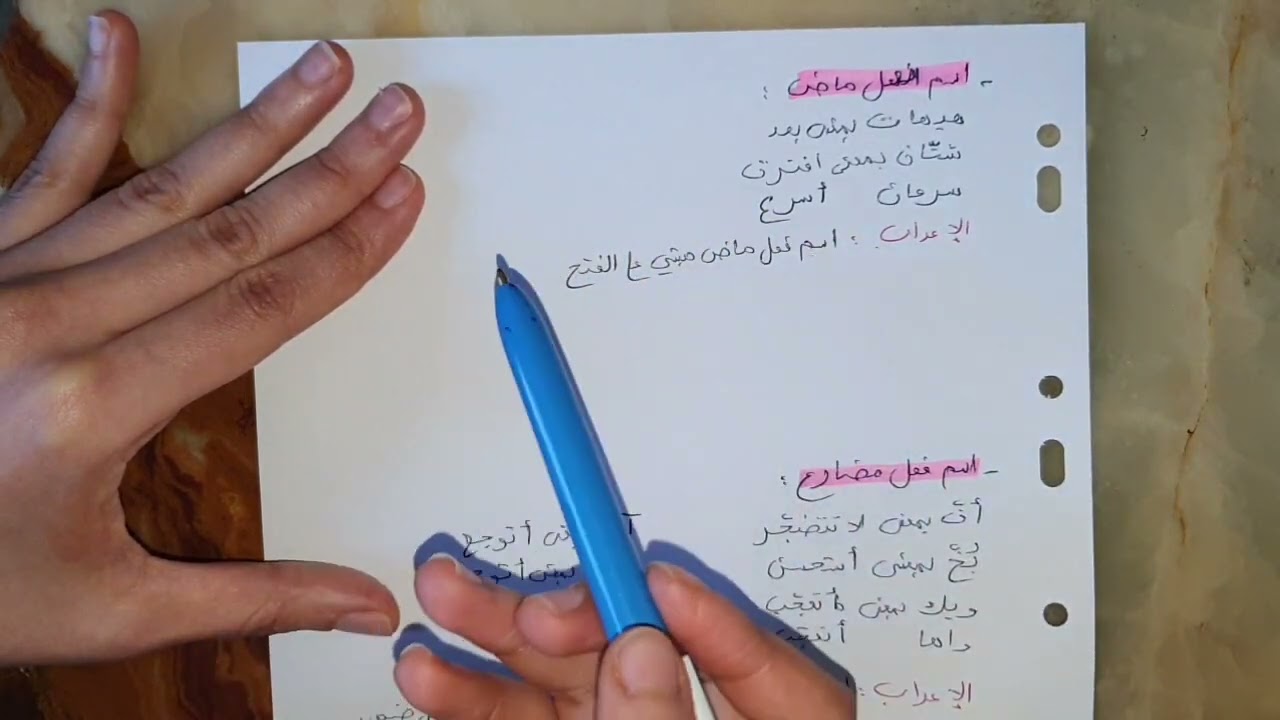 - اسم الفعل ماض :
هيهات بمعنى بعد
شتّان بمعنى افترق
سرعان أسرع
الإعراب : اسم فعل ماض مبني على الفتح
- اسم فعل مضارع :
أفّ بمعنى لا تتضجّر
آ أتوجع
بخّ بمعنى أستحسن
بمعنى أتوج
ويك بمعنى أتعجّب
واها أتعجّب
الإعراب :